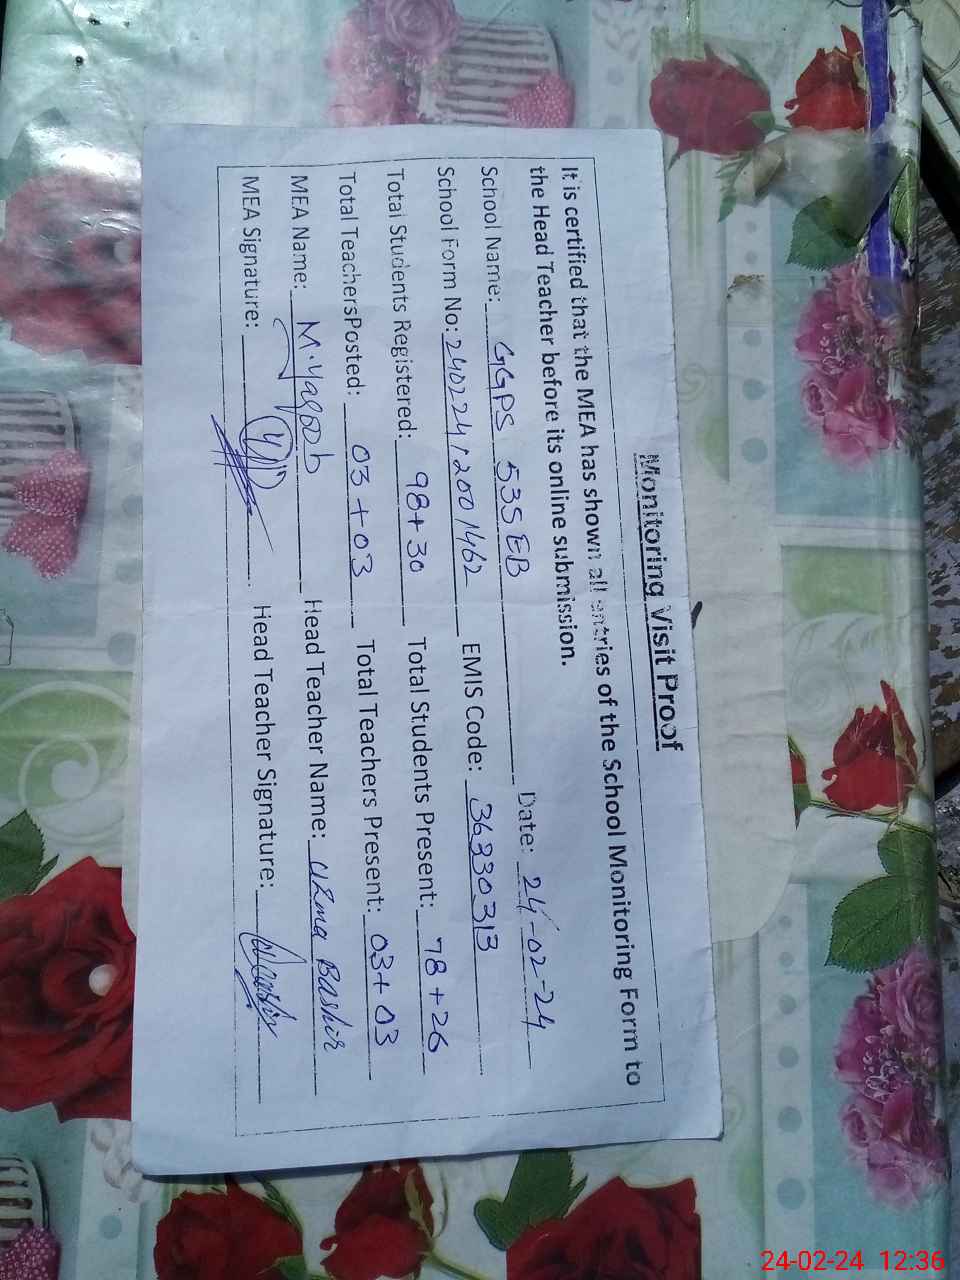 Monitoring Visit Proof
It is certified that the MEA has shown all entries of the School Monitoring Form to
the Head Teacher before its online submission.
Date: 24-02-24
School Name: GGPS 535 EB
School Form No: 240224/2001462 EMIS Code: 36330313
Total Students Registered: 98+30 Total Students Present: 78+26
Total TeachersPosted: 03+03 Total Teachers Present: 03+03
MEA Name: M.Yaqoob Head Teacher Name: Uzma Bashir
MEA Signature: Head Teacher Signature:
24-02-24 12:36